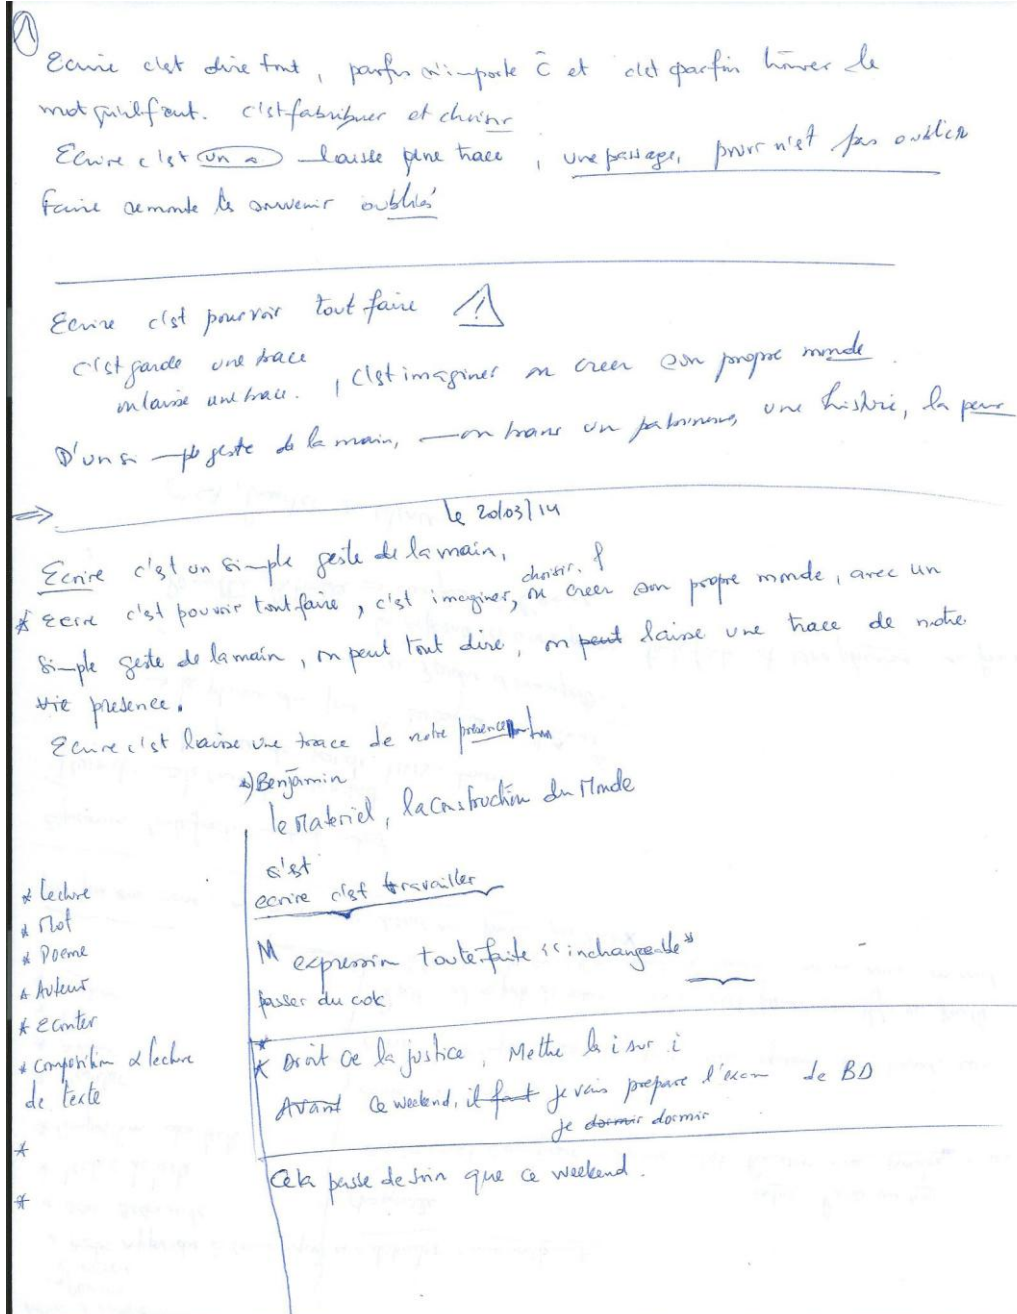 1
Ecrire c'est dire tout, parfois n'importe c et c'est parfois trouver le
mot qu'il faut. c'est fabriquer et choisir
Ecrire c'est un laisse trace, une passage, pour n'est pas oublier
faire remonte les souvenir oubliés
Ecrire c'est pouvoir tout faire !
c'est garde une trace
on laisse une trace. , c'est imaginer on creer son propre monde.
D'un simple geste de la main, on trans un patrimoins, une histoire, la peur
⇒ le 20/03/14
Ecrire c'est un simple geste de la main,
choisir,
* Ecrire c'est pouvoir tout faire, c'est imaginer, ou creer son propre monde, avec un
simple geste de la main, on peut tout dire, on peut laisse une trace de notre
vie presence.
Ecrire c'est laisse une trace de notre présence
Benjamin
le Materiel, la construction du Monde
c'est
ecrire c'est travailler
M expression toute faite "inchangeable"
passer du cok
* Lecture
* Mot
* Poeme
* Auteur
* Ecouter
* Composition lecture
de texte
*
*
*
* Droit de la justice, Mettre les i sur i
Avant ce weekend, il faut je vais prepare l'exam de BD
je dormir dormir
Cela passe de soin que ce weekend.